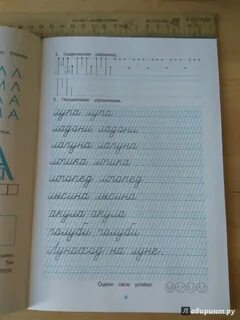 4. Графический диктант.
5. Письменные упражнения.
лупа лупа
ладони ладони
лагуна лагуна
логика логика
логопед логопед
лысина лысина
акула акула
голуби голуби
Луноход на луне.
Оцени свои успехи:
Лабиринт.ру